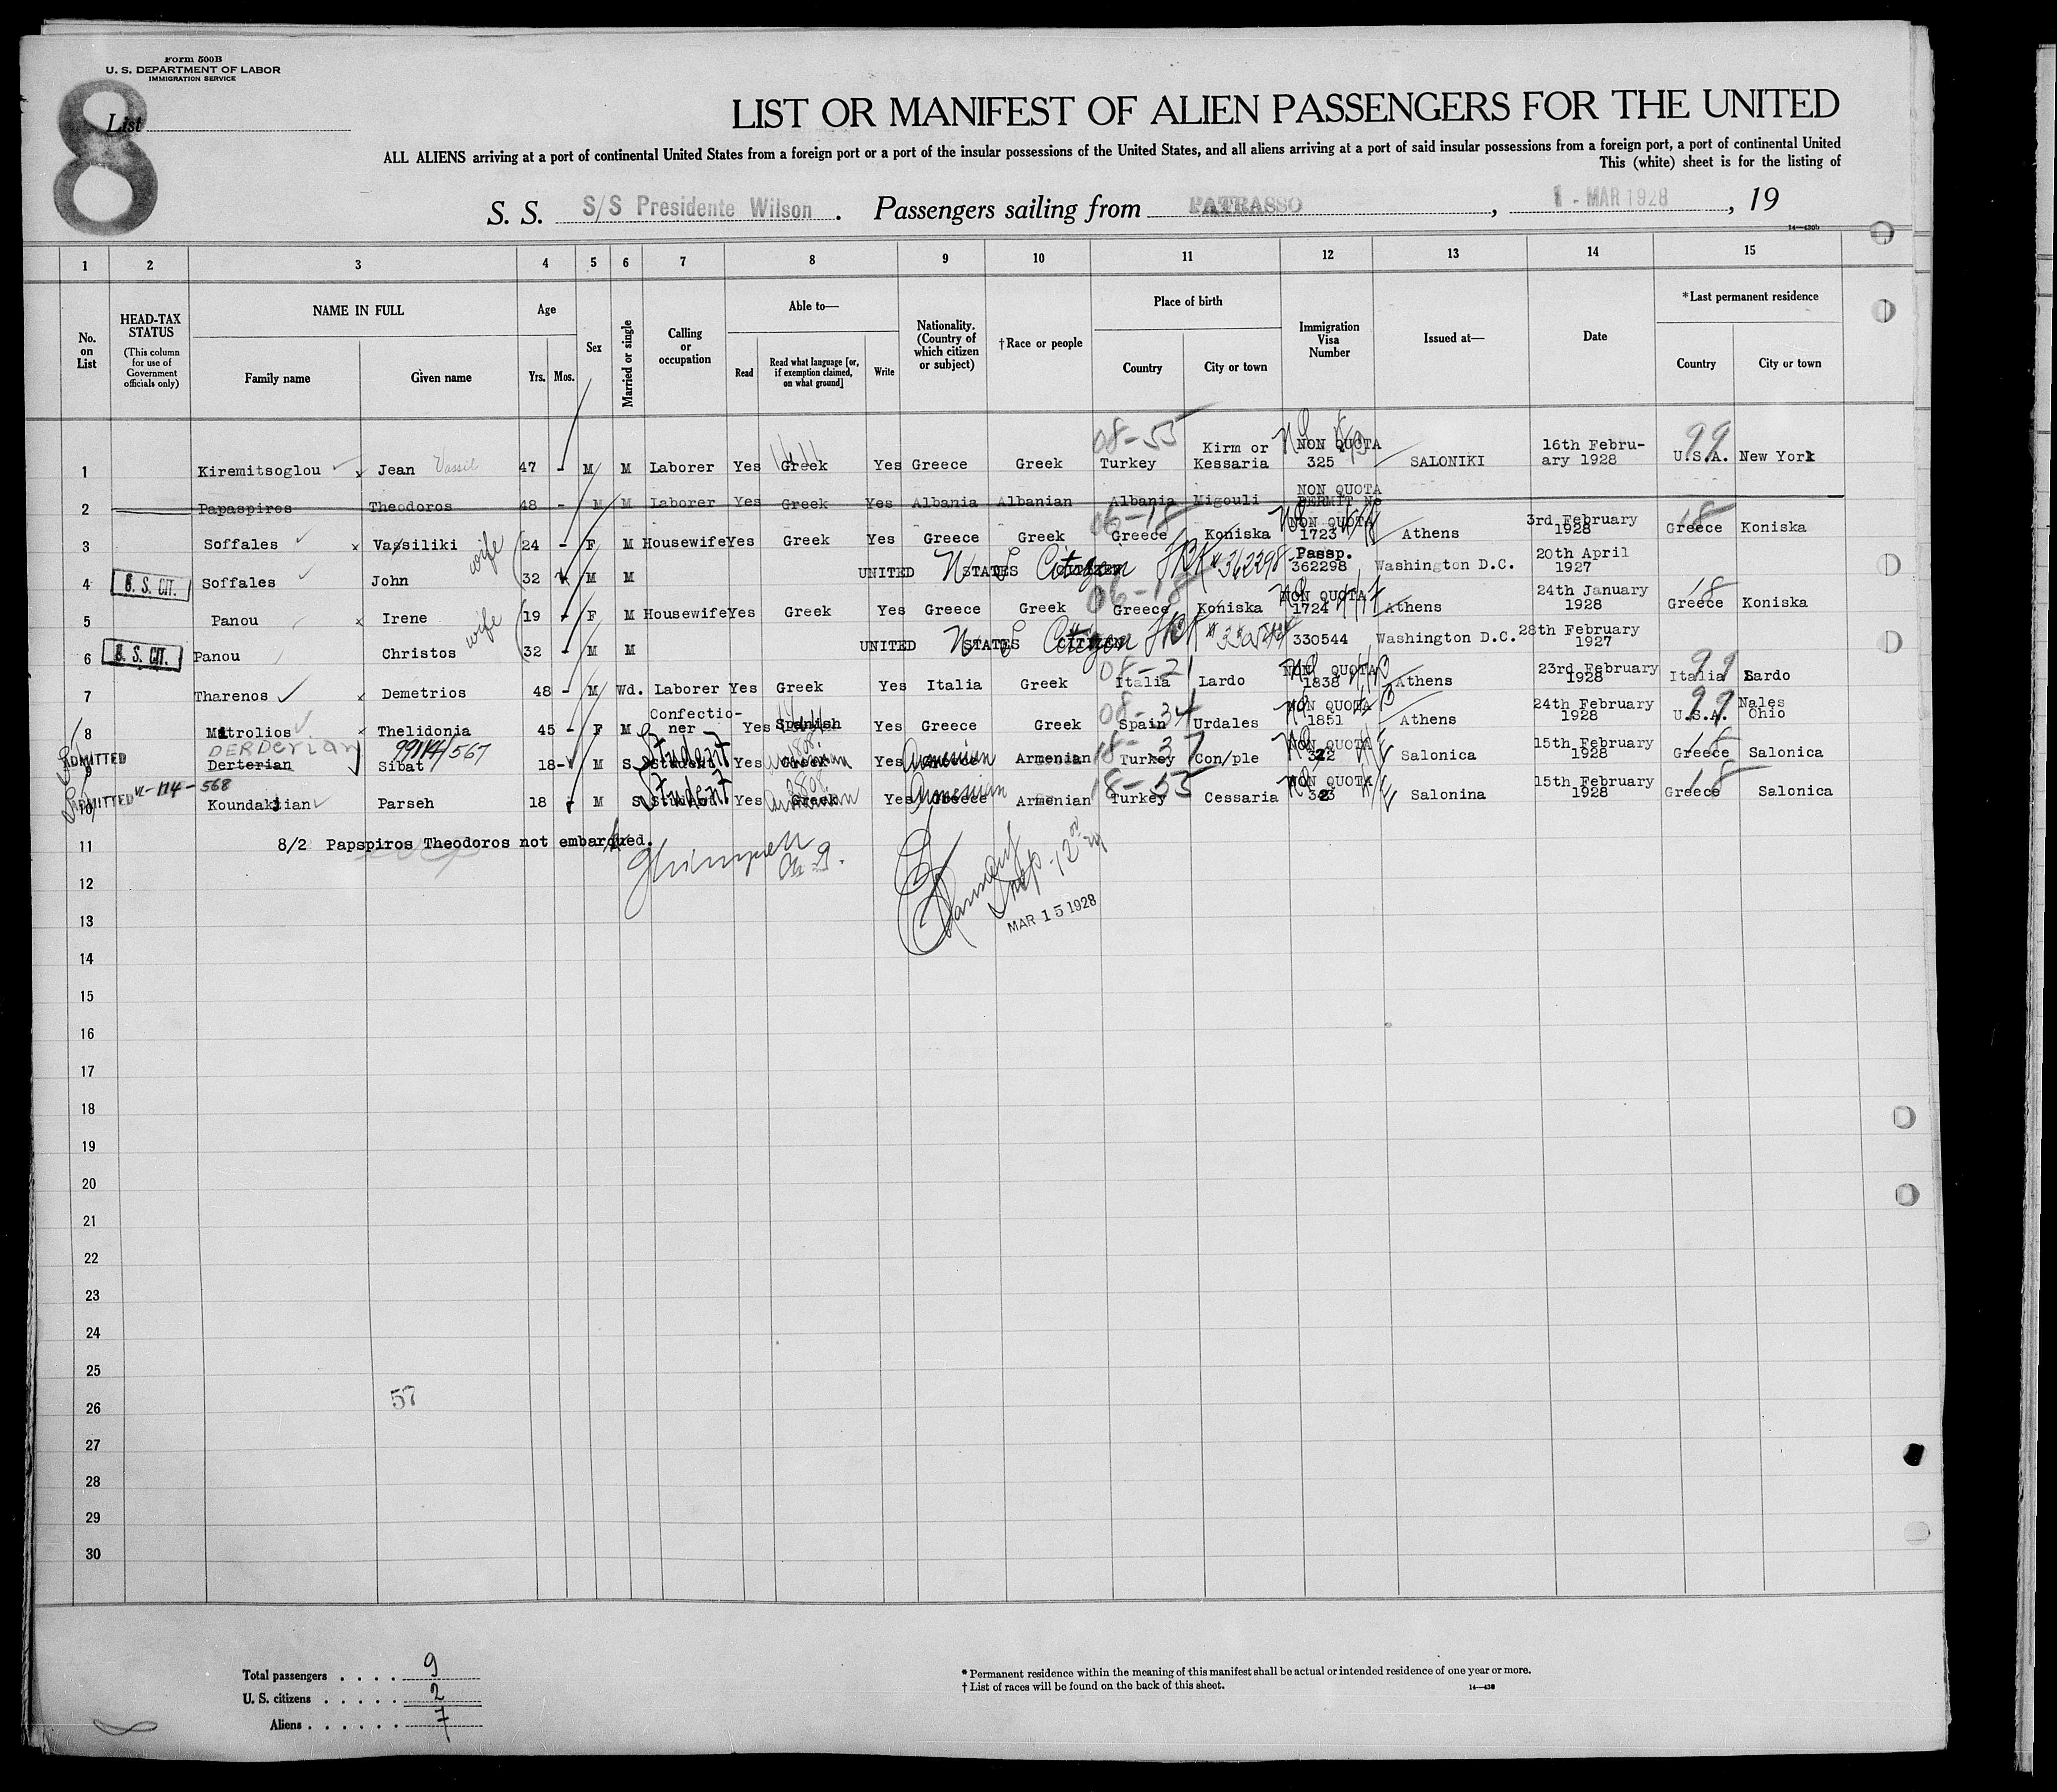 Form 500B
U. S. DEPARTMENT OF LABOR
IMMIGRATION SERVICE
8
List
LIST OR MANIFEST OF ALIEN PASSENGERS FOR THE UNITED
ALL ALIENS arriving at a port of continental United States from a foreign port or a port of the insular possessions of the United States, and all aliens arriving at a port of said insular possessions from a foreign port, a port of continental United
This (white) sheet is for the listing of
S. S. S/S Presidente Wilson . Passengers sailing from PATRASSO , 1 - MAR 1928 , 19
14—430b
1 2 3 4 5 6 7 8 9 10 11 12 13 14 15
No. on List
HEAD-TAX STATUS (This column for use of Government officials only)
NAME IN FULL Family name Given name
Age Yrs. Mos.
Sex
Married or single
Calling or occupation
Able to— Read Read what language [or, if exemption claimed, on what ground] Write
Nationality. (Country of which citizen or subject)
†Race or people
Place of birth Country City or town
Immigration Visa Number
Issued at—
Date
*Last permanent residence Country City or town
1 Kiremitsoglou x Jean Vassil 47 - M M Laborer Yes Greek Yes Greece Greek 08-55 Turkey Kirm or Kessaria NON QUOTA 325 SALONIKI 16th Febru-ary 1928 99 U.S.A. New York
2 Papaspiros Theodoros 48 - M M Laborer Yes Greek Yes Albania Albanian Albania Migouli NON QUOTA PERMIT No
3 Soffales x Vassiliki wife 24 - F M Housewife Yes Greek Yes Greece Greek 06-18 Greece Koniska NON QUOTA 1723 Athens 3rd February 1928 18 Greece Koniska
4 U. S. CIT. Soffales John 32 M M UNITED STATES CITIZEN Citizen #362298 Passp. 362298 Washington D.C. 20th April 1927
5 Panou x Irene wife 19 - F M Housewife Yes Greek Yes Greece Greek 06-18 Greece Koniska NON QUOTA 1724 Athens 24th January 1928 18 Greece Koniska
6 U. S. CIT. Panou Christos 32 - M M UNITED STATES CITIZEN Citizen 330544 Washington D.C. 28th February 1927
7 Tharenos x Demetrios 48 - M Wd. Laborer Yes Greek Yes Italia Greek 08-21 Italia Lardo NON QUOTA 1838 Athens 23rd February 1928 99 Italia Lardo
8 Mitrolios x Thelidonia 45 - F M Confectio-ner Yes Spanish Yes Greece Greek 08-34 Spain Urdales NON QUOTA 1851 Athens 24th February 1928 99 U.S.A. Nales Ohio
ADMITTED 9 DERDerian Derterian Sibat 99114/567 18 - M S Student Yes Armenian Yes Armenian Armenian 18-37 Turkey Con/ple NON QUOTA 322 Salonica 15th February 1928 18 Greece Salonica
ADMITTED 10 568 Koundaktian Parseh 18 M S Student Yes Greek Armenian Yes Greece Armenian Armenian 18-55 Turkey Cessaria NON QUOTA 323 Salonina 15th February 1928 18 Greece Salonica
11 8/2 Papspiros Theodoros not embarqued.
12
13 MAR 15 1928
14
15
16
17
18
19
20
21
22
23
24
25
57
26
27
28
29
30
Total passengers . . . . 9
U. S. citizens . . . . . 2
Aliens . . . . . . 7
* Permanent residence within the meaning of this manifest shall be actual or intended residence of one year or more.
† List of races will be found on the back of this sheet.
14—430